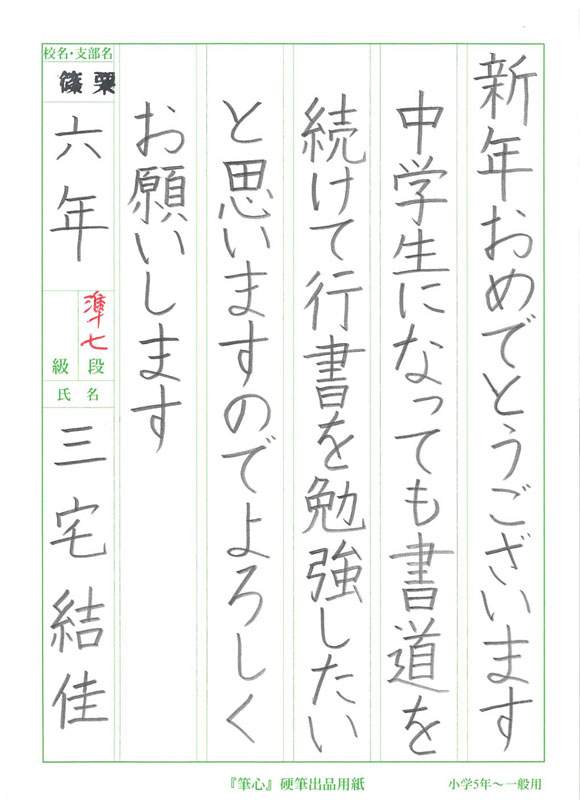 新年おめでとうございます
中学生になっても書道を
続けて行書を勉強したい
と思いますのでよろしく
お願いします
校名・支部名
篠栗
六年
準七
段
級
氏名
三宅結佳
『筆心』硬筆出品用紙
小学5年～一般用